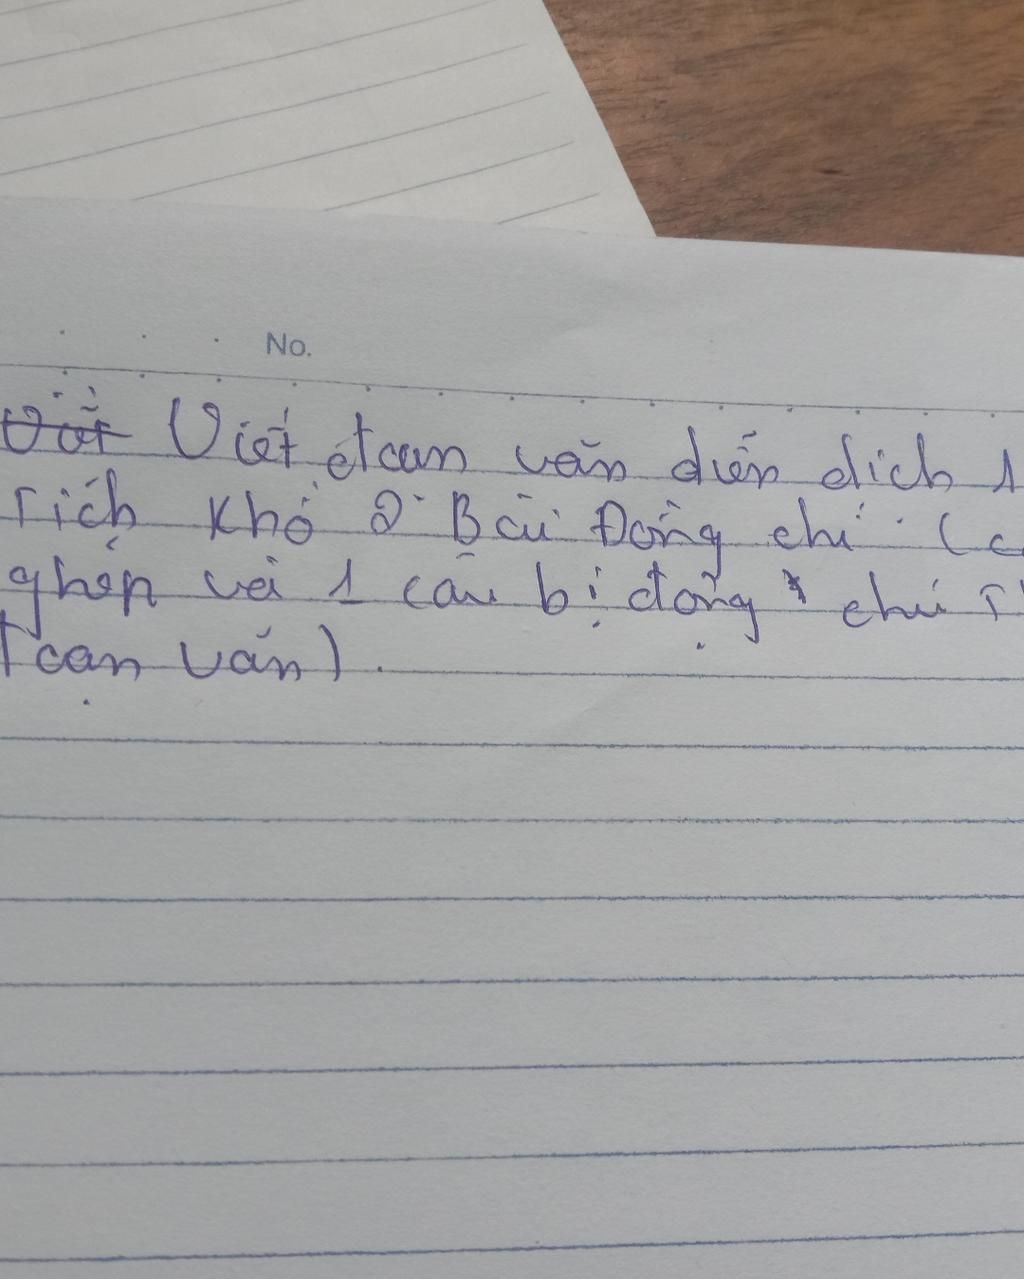 No.
Viết đoạn văn diễn dịch 1
Tích khổ 2 Bài Đồng chí (c
ghép và 1 câu bị động, chú T
đoạn văn).